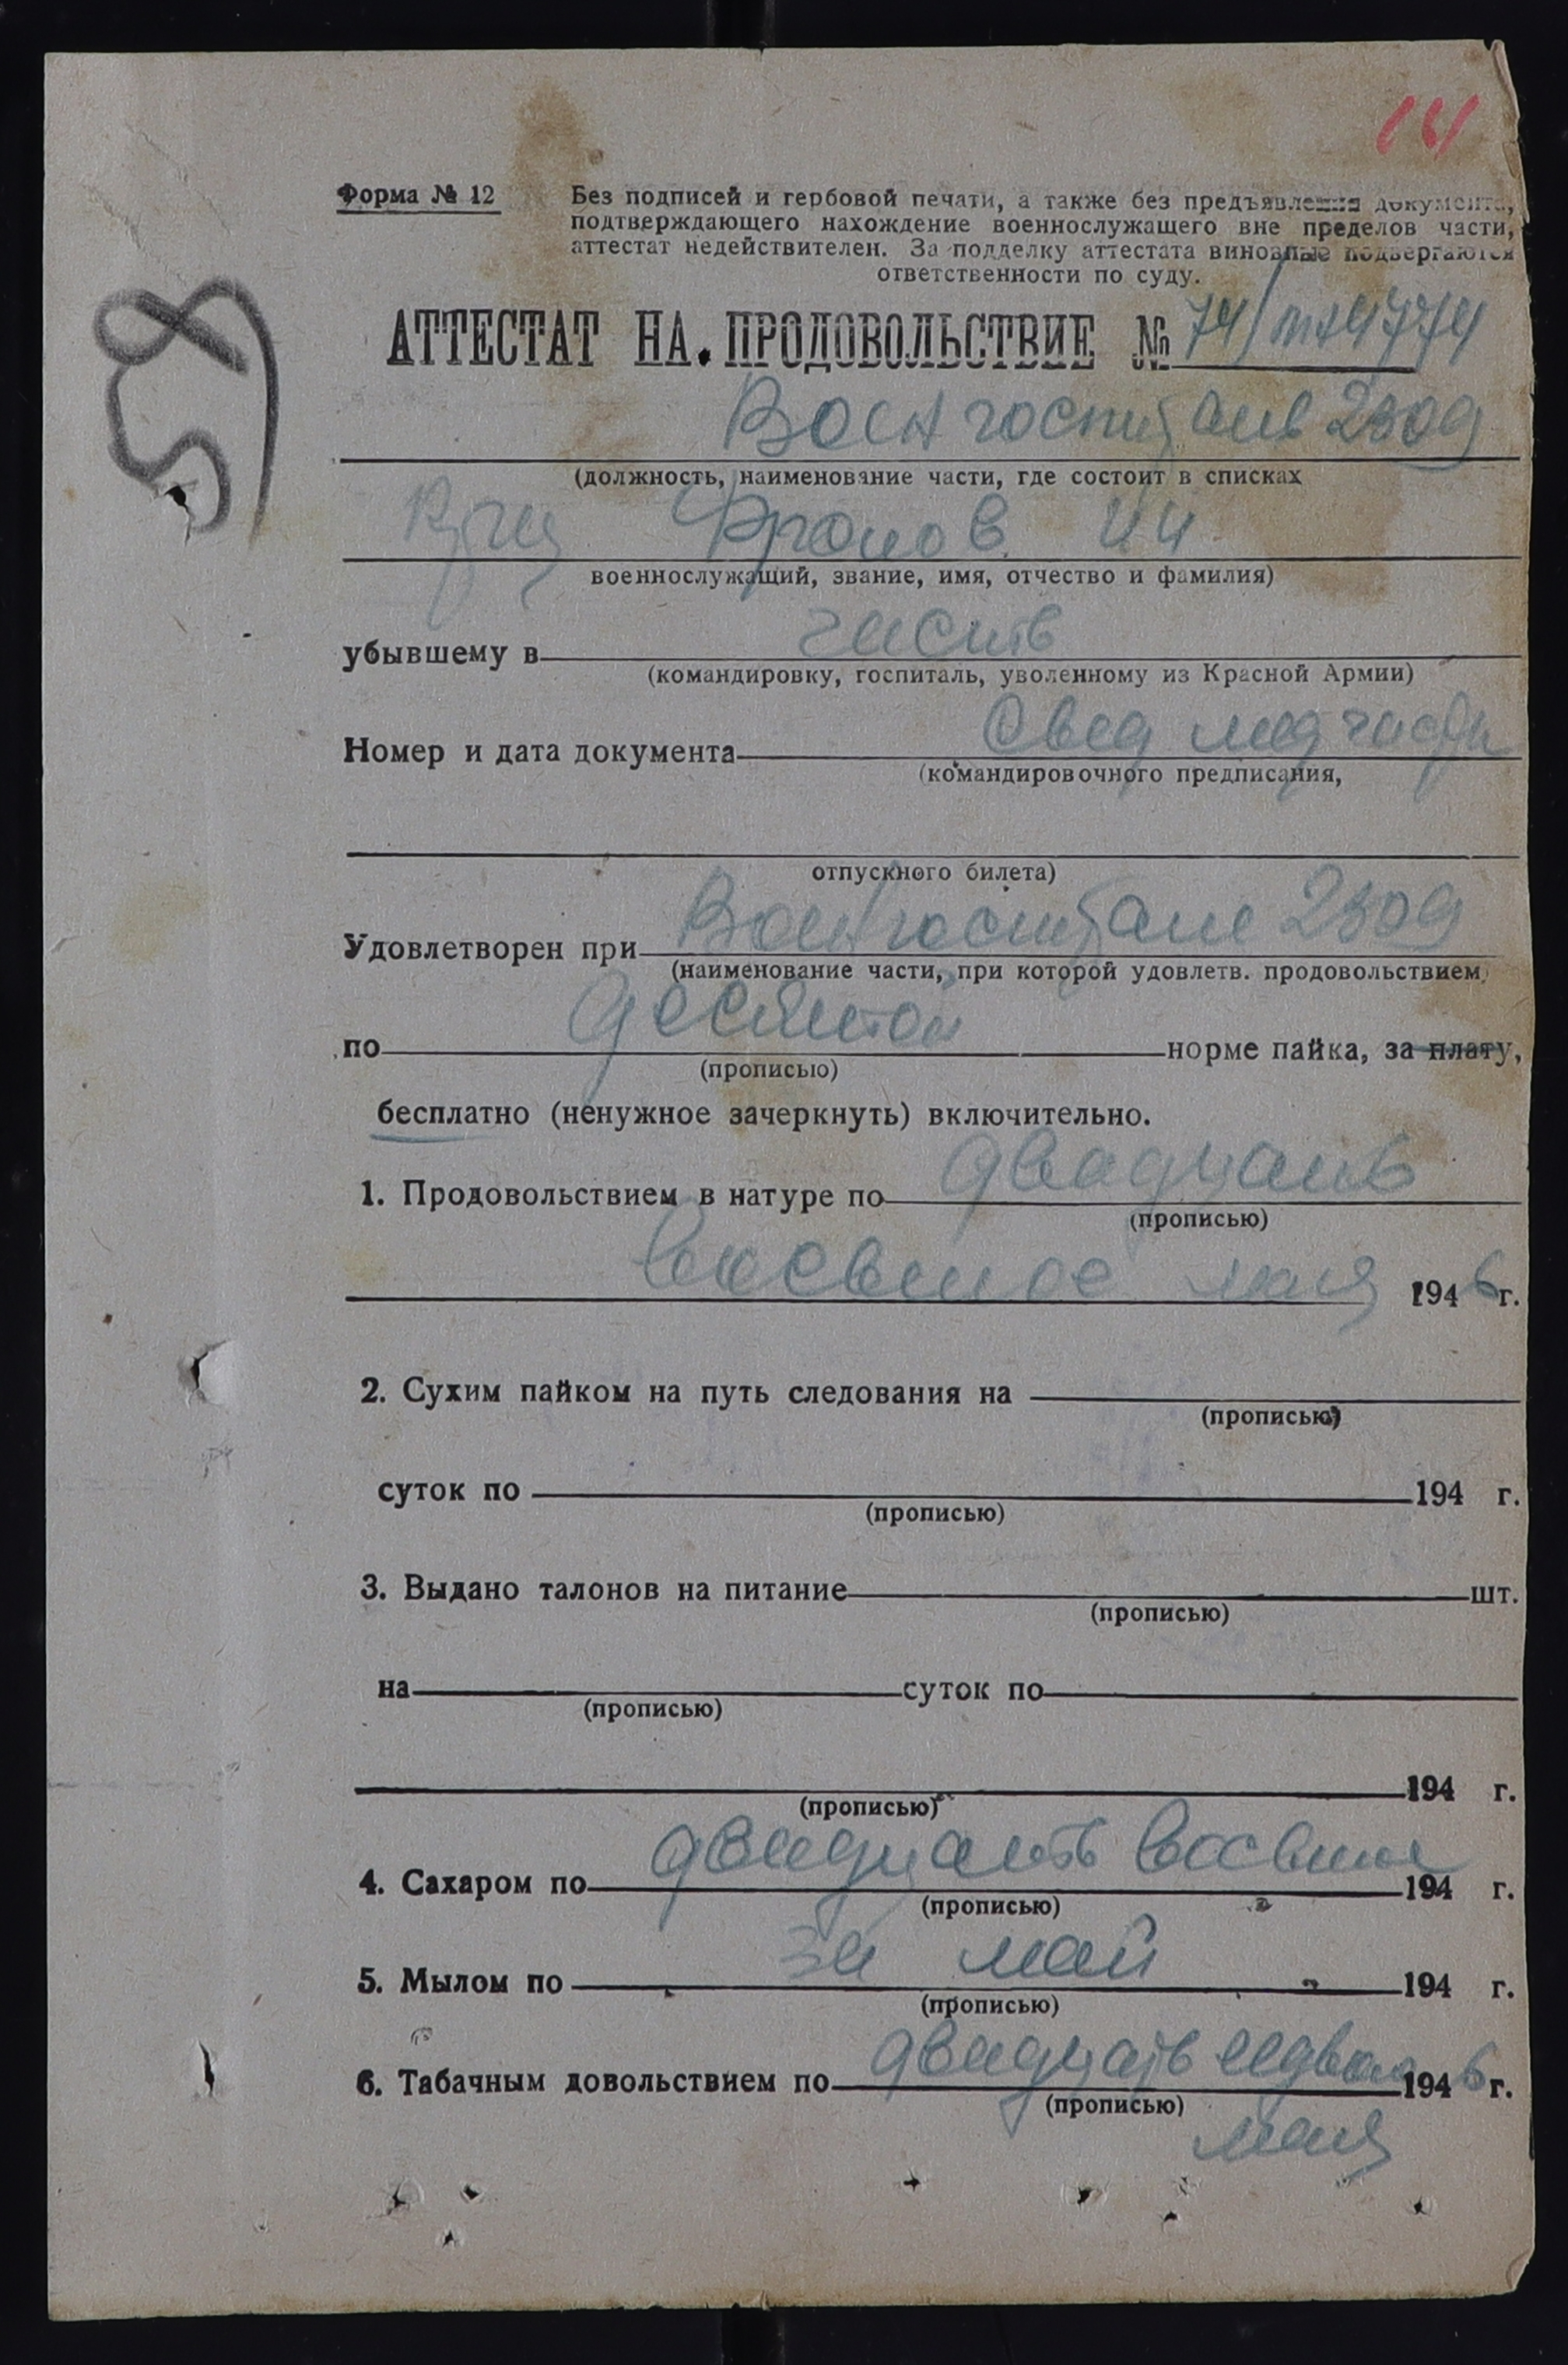 141
Форма № 12
Без подписей и гербовой печати, а также без предъявления документа,
подтверждающего нахождение военнослужащего вне пределов части,
аттестат недействителен. За подделку аттестата виновные подвергаются
ответственности по суду.
АТТЕСТАТ НА ПРОДОВОЛЬСТВИЕ № 74/
59
Военгоспиталь 2309
(должность, наименование части, где состоит в списках
Фролов ИИ
военнослужащий, звание, имя, отчество и фамилия)
убывшему в часть
(командировку, госпиталь, уволенному из Красной Армии)
Номер и дата документа свед медчасти
(командировочного предписания,
отпускного билета)
Удовлетворен при Военгоспитале 2309
(наименование части, при которой удовлетв. продовольствием)
по десятой норме пайка, за плату,
(прописью)
бесплатно (ненужное зачеркнуть) включительно.
1. Продовольствием в натуре по двадцать
(прописью)
восьмое мая 1946 г.
2. Сухим пайком на путь следования на
(прописью)
суток по 194 г.
(прописью)
3. Выдано талонов на питание шт.
(прописью)
на суток по
(прописью)
194 г.
(прописью)
4. Сахаром по двадцать восьмое 194 г.
(прописью)
5. Мылом по за май 194 г.
(прописью)
6. Табачным довольствием по двадцать 1946 г.
(прописью)
мая